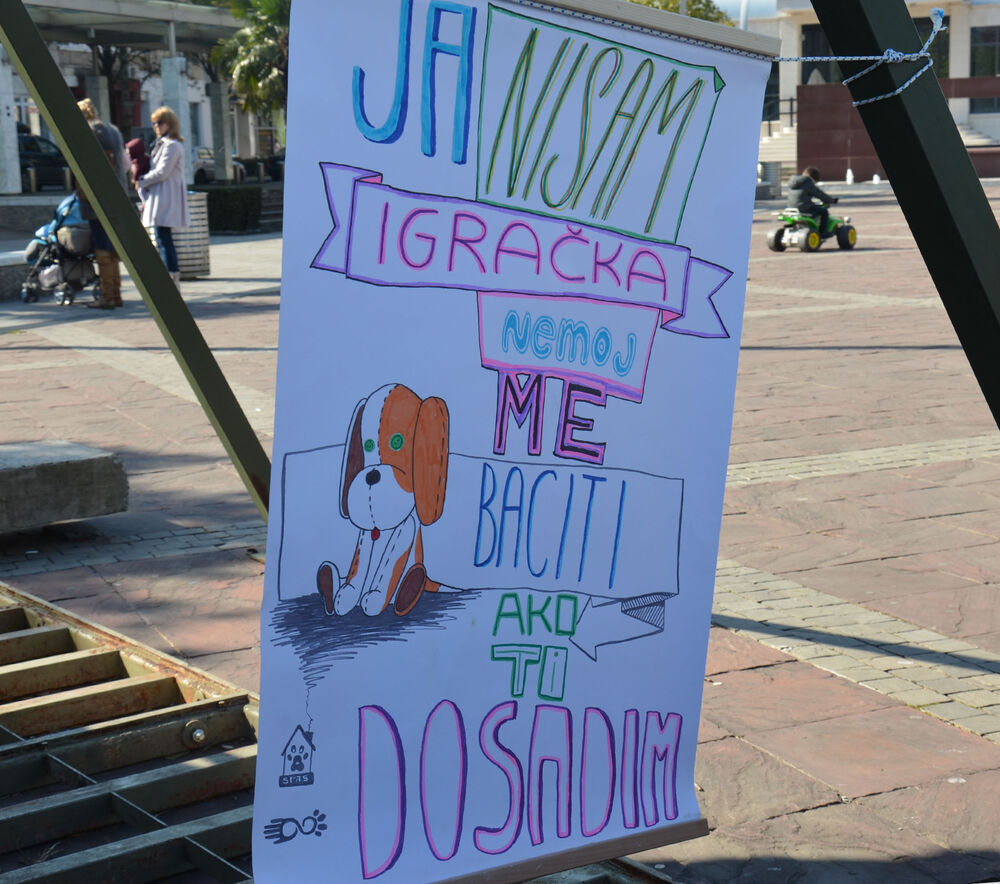 JA NISAM
IGRAČKA
NEMOJ
ME
BACITI
AKO
TI
DOSADIM